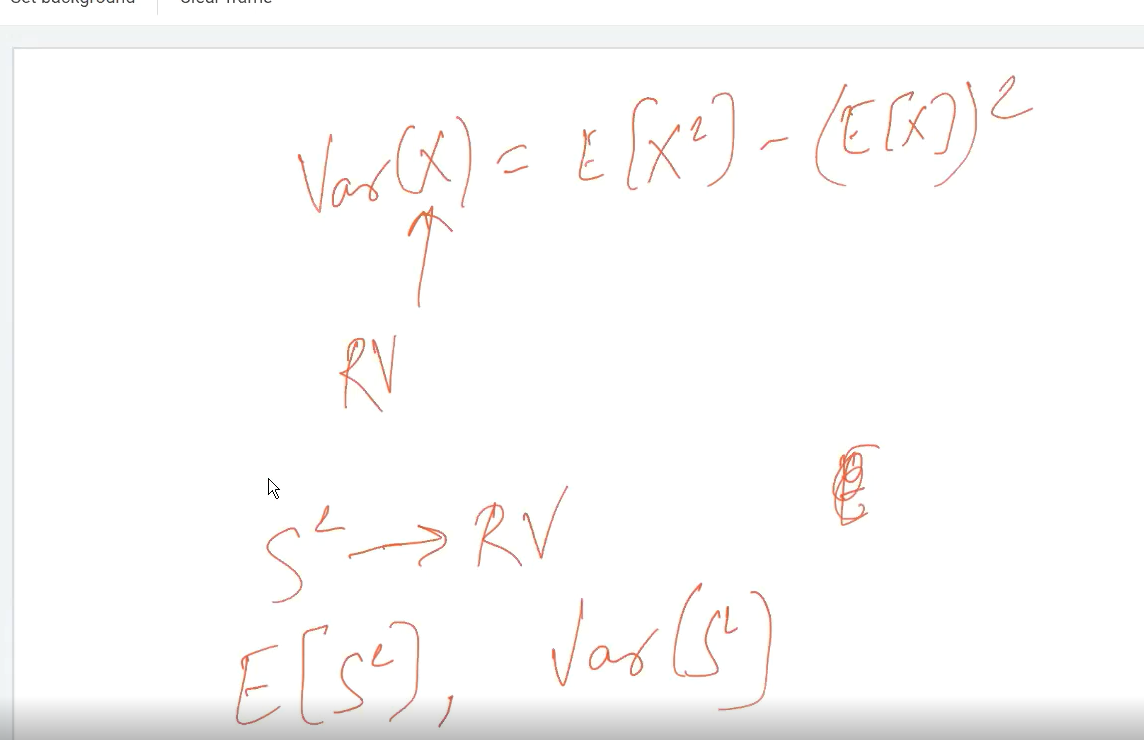 Set background Clear frame
Var(X) = E[X²] - (E[X])²
RV
S² → RV
E[S²], Var(S²)